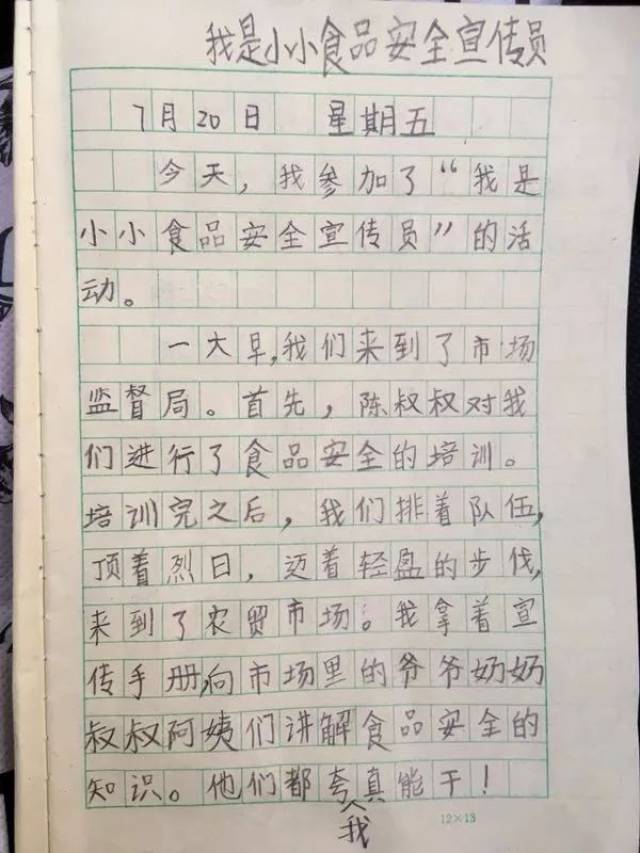 我是小小食品安全宣传员
7月20日 星期五
今天，我参加了“我是
小小食品安全宣传员”的活
动。
一大早,我们来到了市场
监督局。首先，陈叔叔对我
们进行了食品安全的培训。
培训完之后，我们排着队伍,
顶着烈日，迈着轻盈的步伐,
来到了农贸市场。我拿着宣
传手册,向市场里的爷爷奶奶
叔叔阿姨们讲解食品安全的
知识。他们都夸我真能干！
12×13